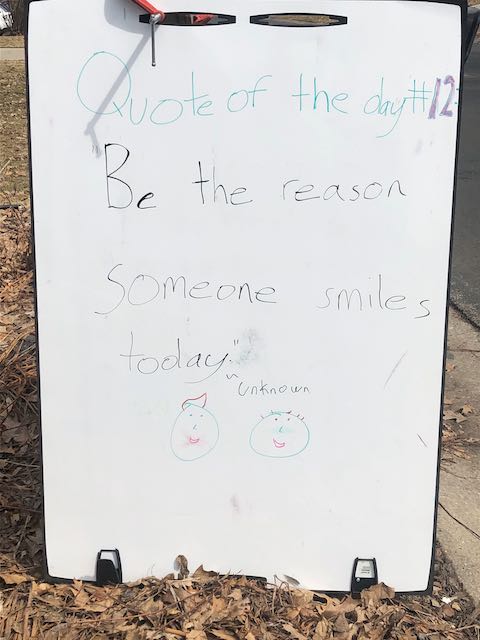 Quote of the day #12:
Be the reason
someone smiles
today."
~ unknown